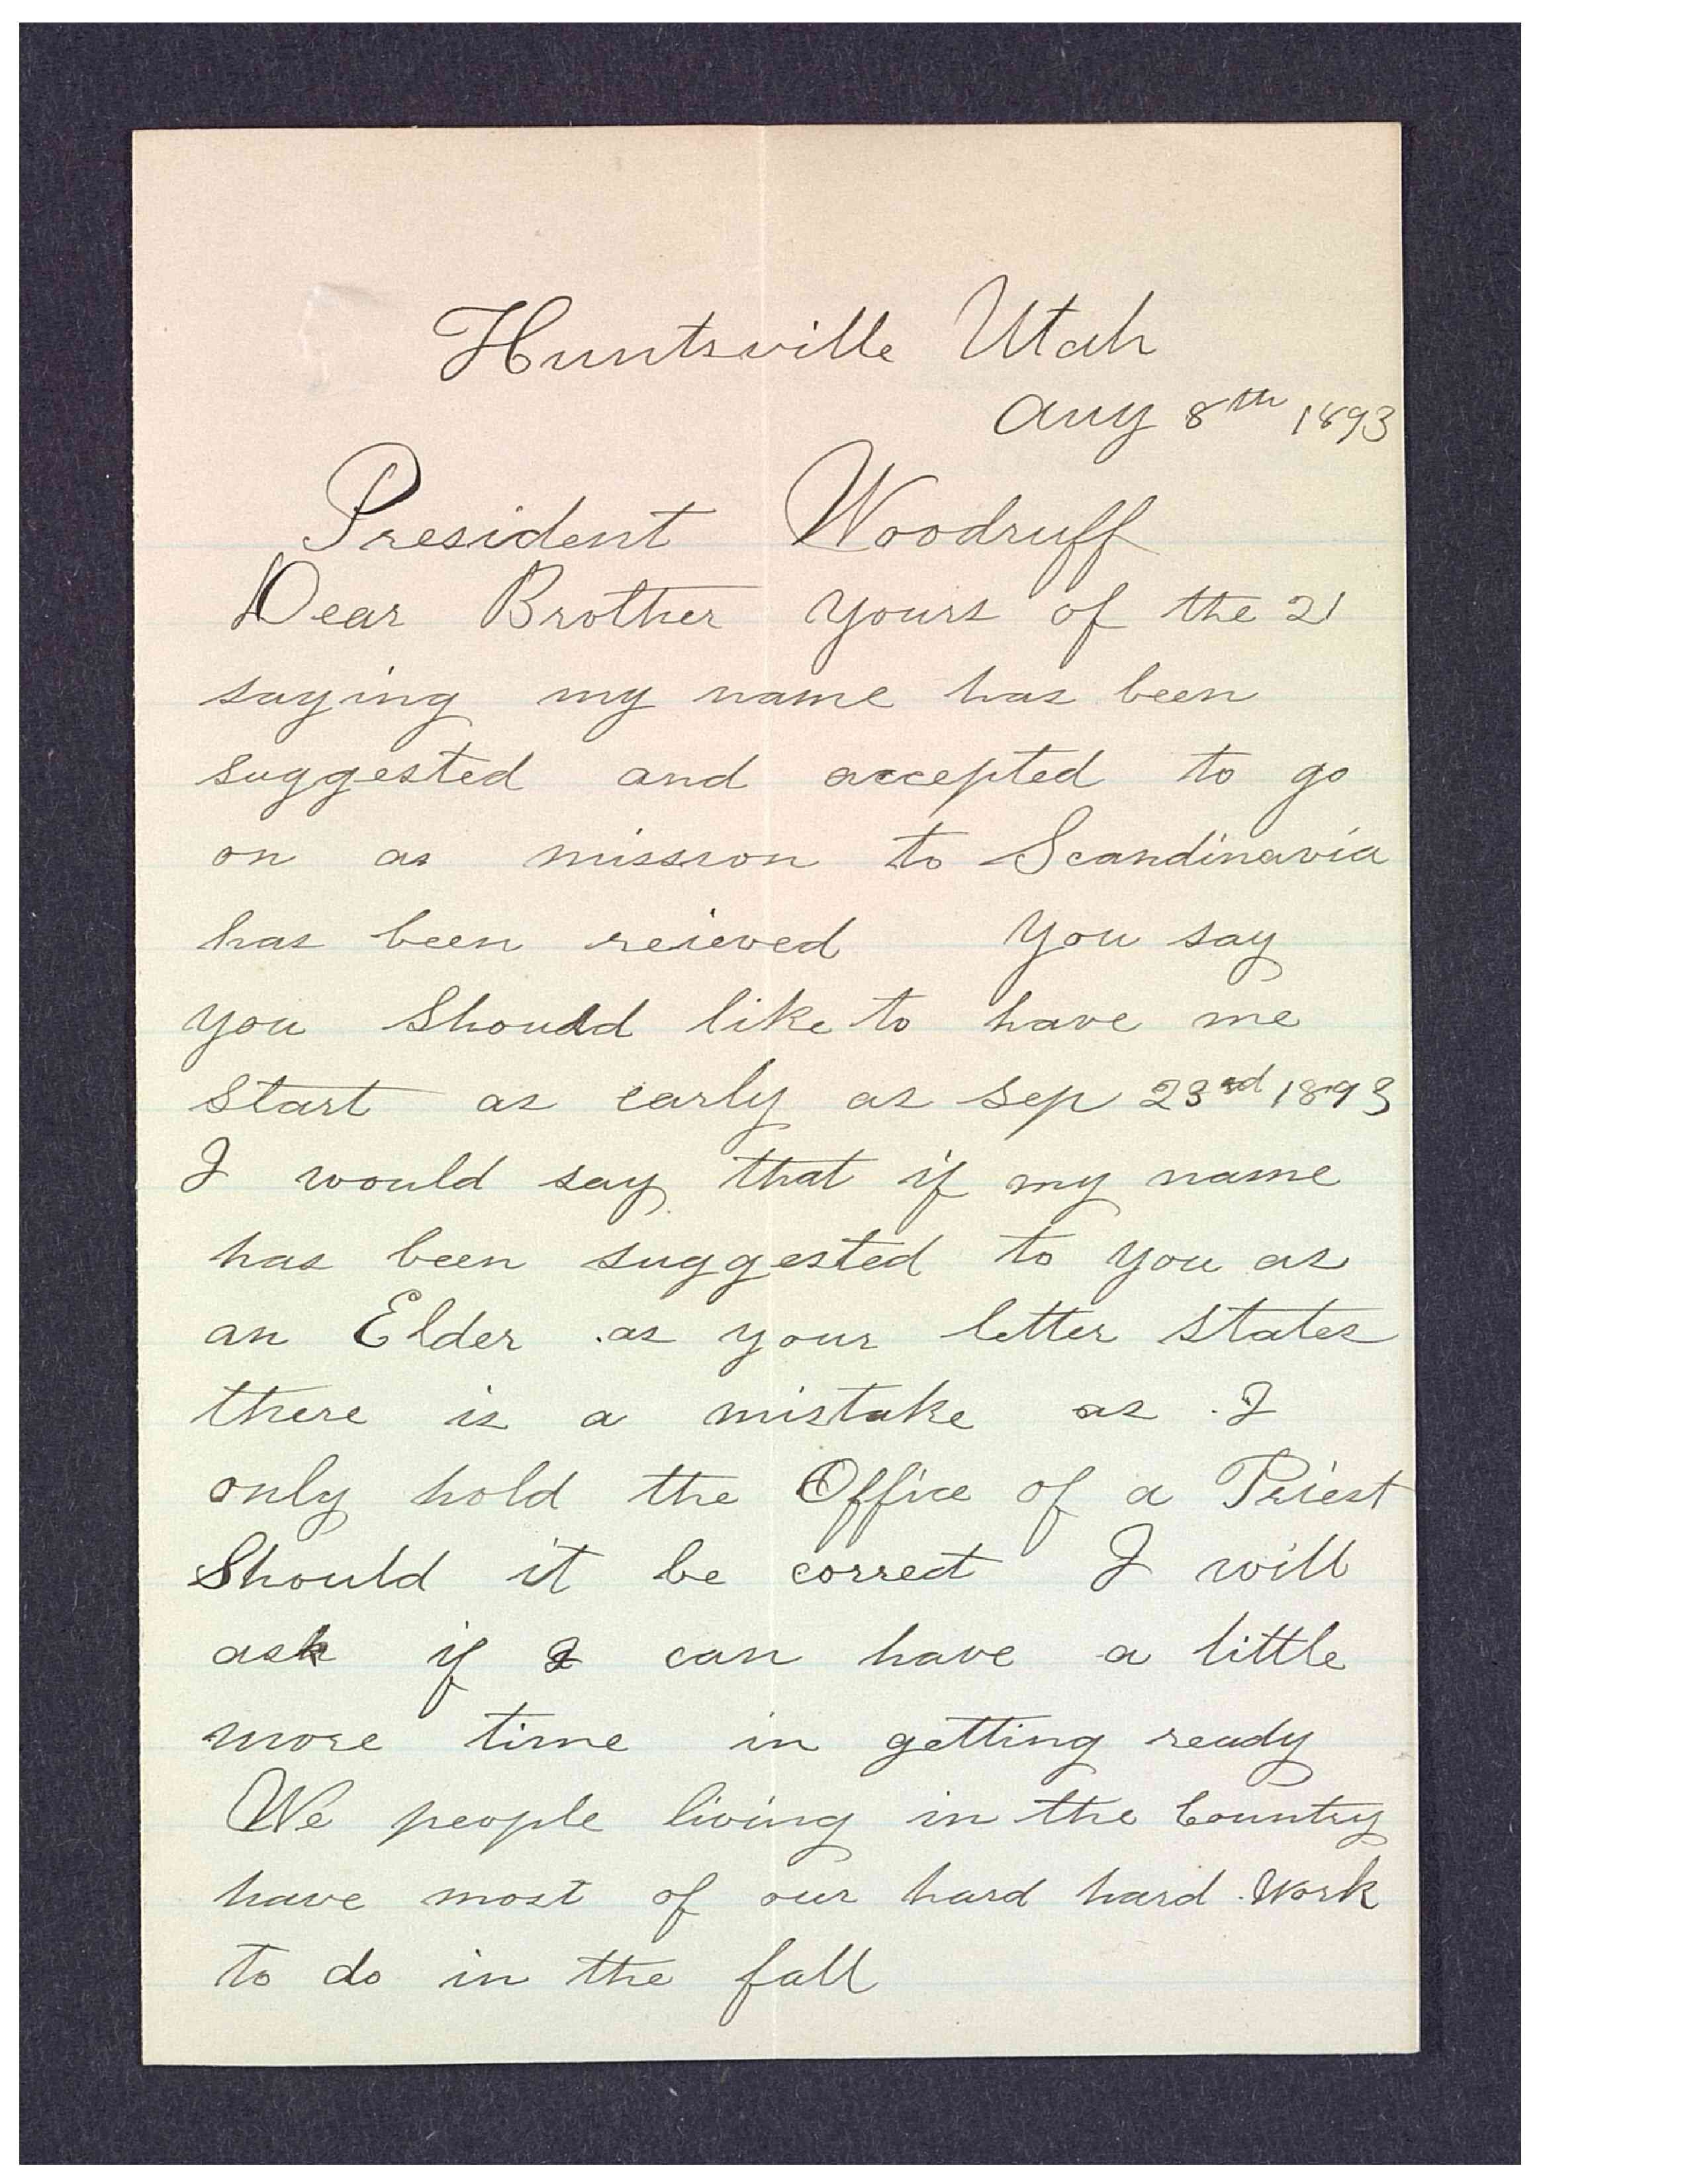 Huntsville Utah
Aug 8th 1893
President Woodruff
Dear Brother yours of the 21
saying my name has been
suggested and accepted to go
on as mission to Scandinavia
has been reieved you say
you Should like to have me
Start as early as sep 23rd 1893
I would say that if my name
has been suggested to you as
an Elder as your letter States
there is a mistake as I
only hold the Office of a Priest
Should it be correct I will
ask if I can have a little
more time in getting ready
We people living in the Country
have most of our hard hard Work
to do in the fall